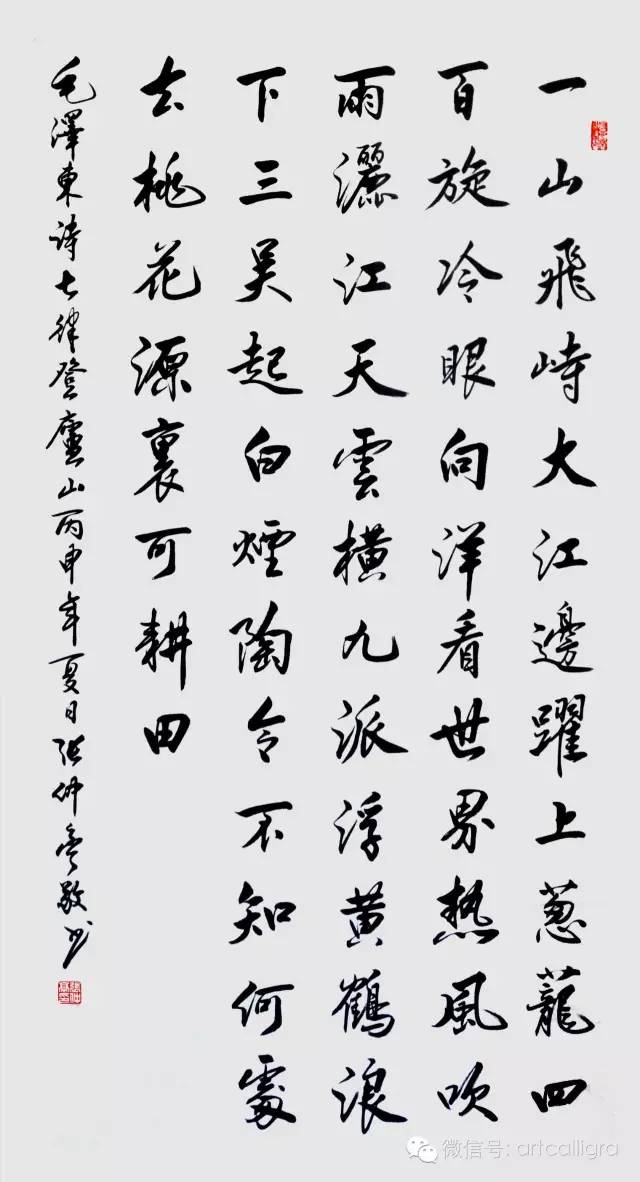 一山飛峙大江邊躍上葱蘢四
百旋冷眼向洋看世界热風吹
雨灑江天雲橫九派浮黄鶴浪
下三吴起白煙陶令不知何處
去桃花源裏可耕田
毛澤東诗七律登廬山丙申年夏日张仲敬书
微信号: artcalligra